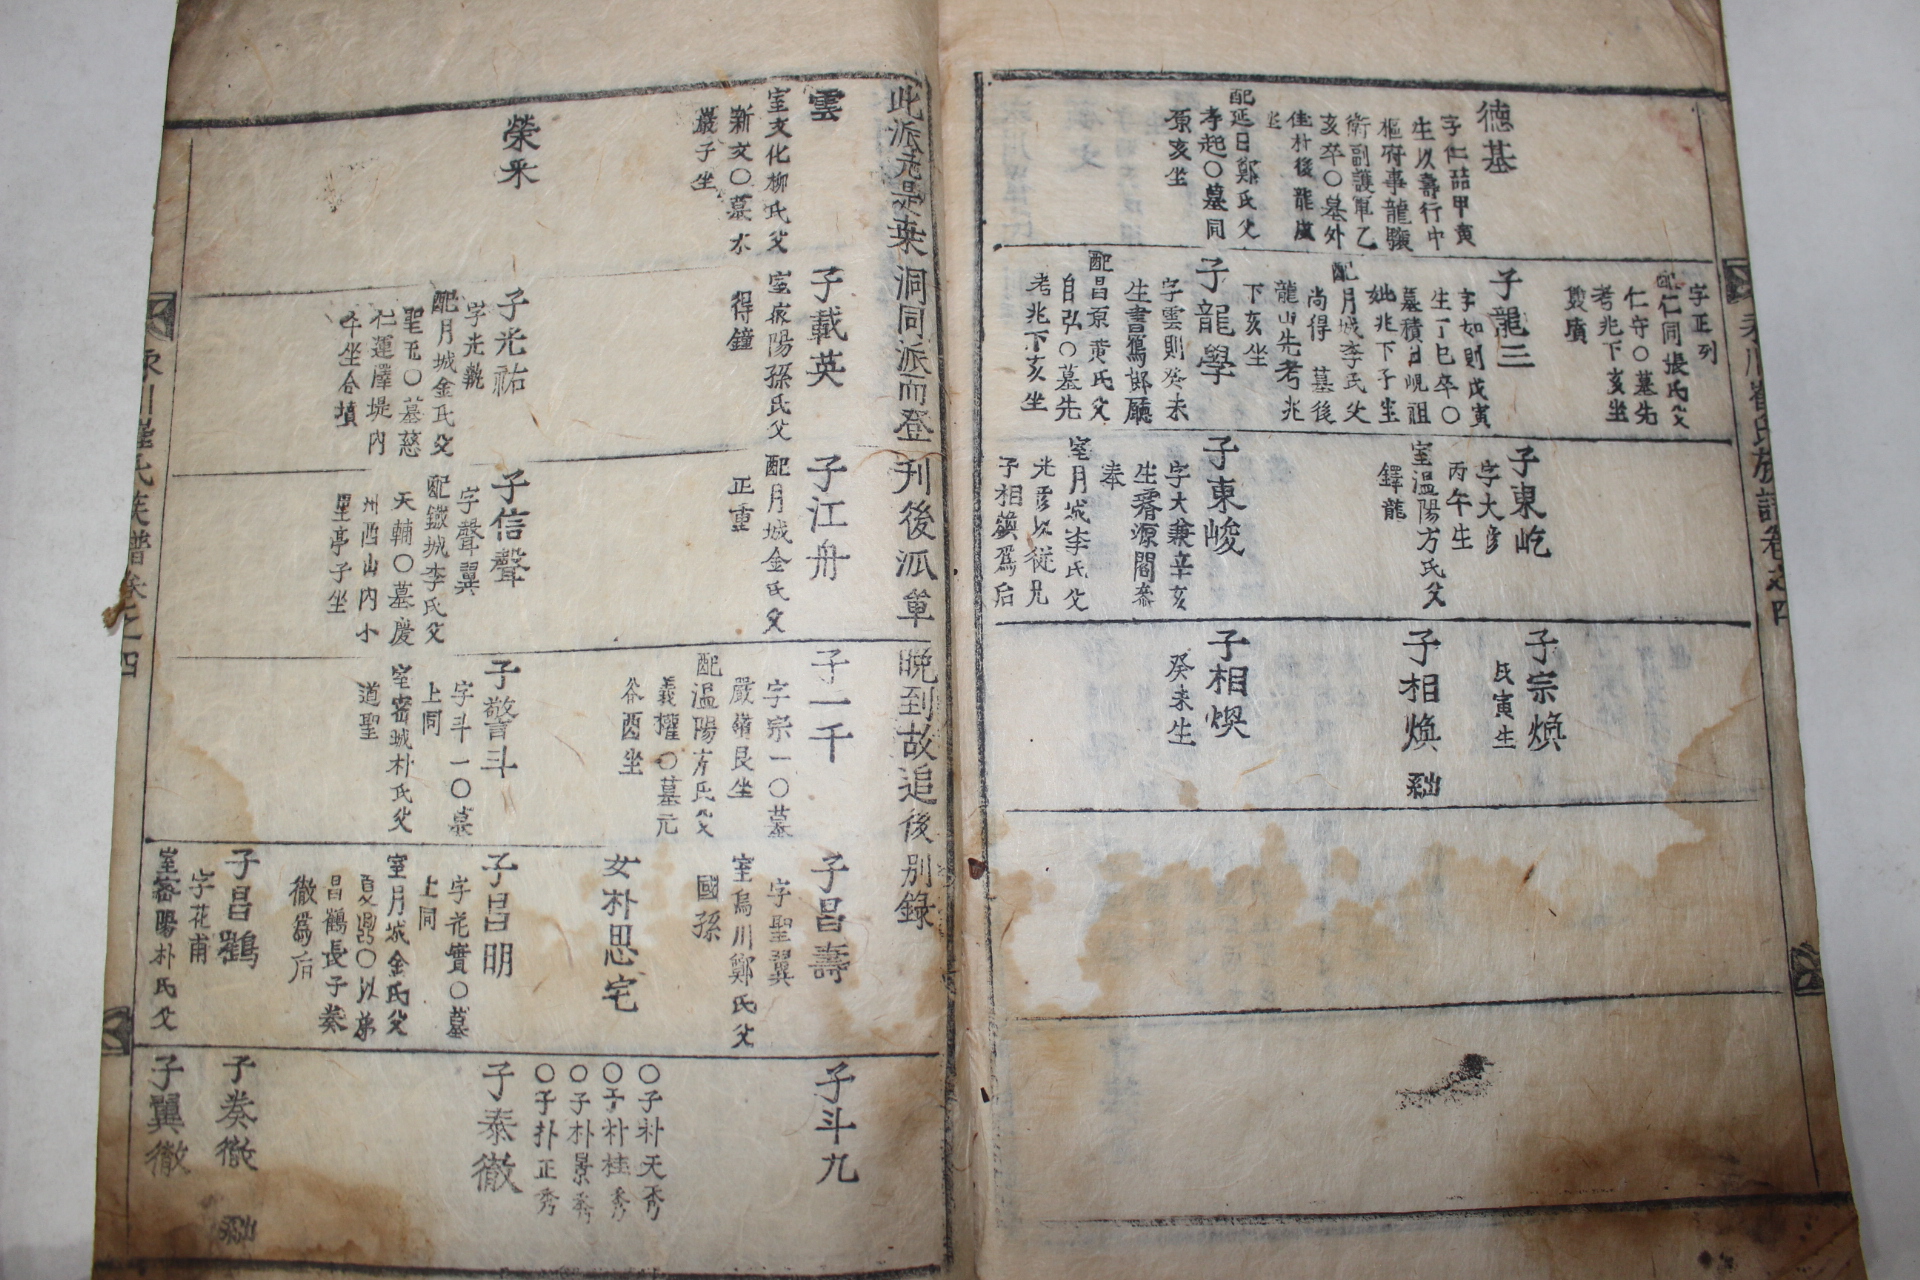 德基
字仁喆甲寅
生以壽行中
樞府事龍驤
衛副護軍乙
亥卒〇墓外
佳朴後龍崗
坐
配延日鄭氏父
孝起〇墓同
原亥坐
字正列
配仁同張氏父
仁守〇墓先
考兆下亥坐
雙墳
子龍三
字如則戊寅
生丁巳卒〇
墓積日峴祖
妣兆下子坐
配月城李氏父
尚得 墓後
龍山先考兆
下亥坐
子龍學
字雲則癸未
生書寫郎廳
配昌原黃氏父
自弘〇墓先
考兆下亥坐
子東屹
字大彦
丙午生
室溫陽方氏父
鐸龍
子東峻
字大兼辛亥
生濬源閣參
奉
室月城李氏父
光彦以從兄
子相鎮爲后
子宗煥
氏寅生
子相煥
子相煥
癸未生
此派元是來洞同派而登刊後派單晩到故追後別錄
雲
室文化柳氏父
新文〇墓水
巖子坐
榮来
子載英
室密陽孫氏父
得鐘
子光祐
字光執
配月城金氏父
聖元〇墓慈
仁運澤堤內
午坐合墳
子江舟
配月城金氏父
正重
子信聲
字聲翼
配鐵城李氏父
天輔〇墓慶
州西山內小
星亭子坐
子一千
字宗一〇墓
嚴嶺艮坐
配溫陽方氏父
義權〇墓元
谷酉坐
子警斗
字斗一〇墓
上同
室密城朴氏父
道聖
子昌壽
字聖翼
室烏川鄭氏父
國孫
女朴思宅
子昌明
字花實〇墓
上同
室月城金氏父
夏鼎〇以弟
昌鶴長子奏
徹爲后
子昌鶴
字花甫
室密陽朴氏父
子斗九
〇子朴天秀
〇子朴桂秀
〇子朴景秀
〇子朴正秀
子泰徹
子奏徹
子翼徹
永川崔氏族譜卷之四